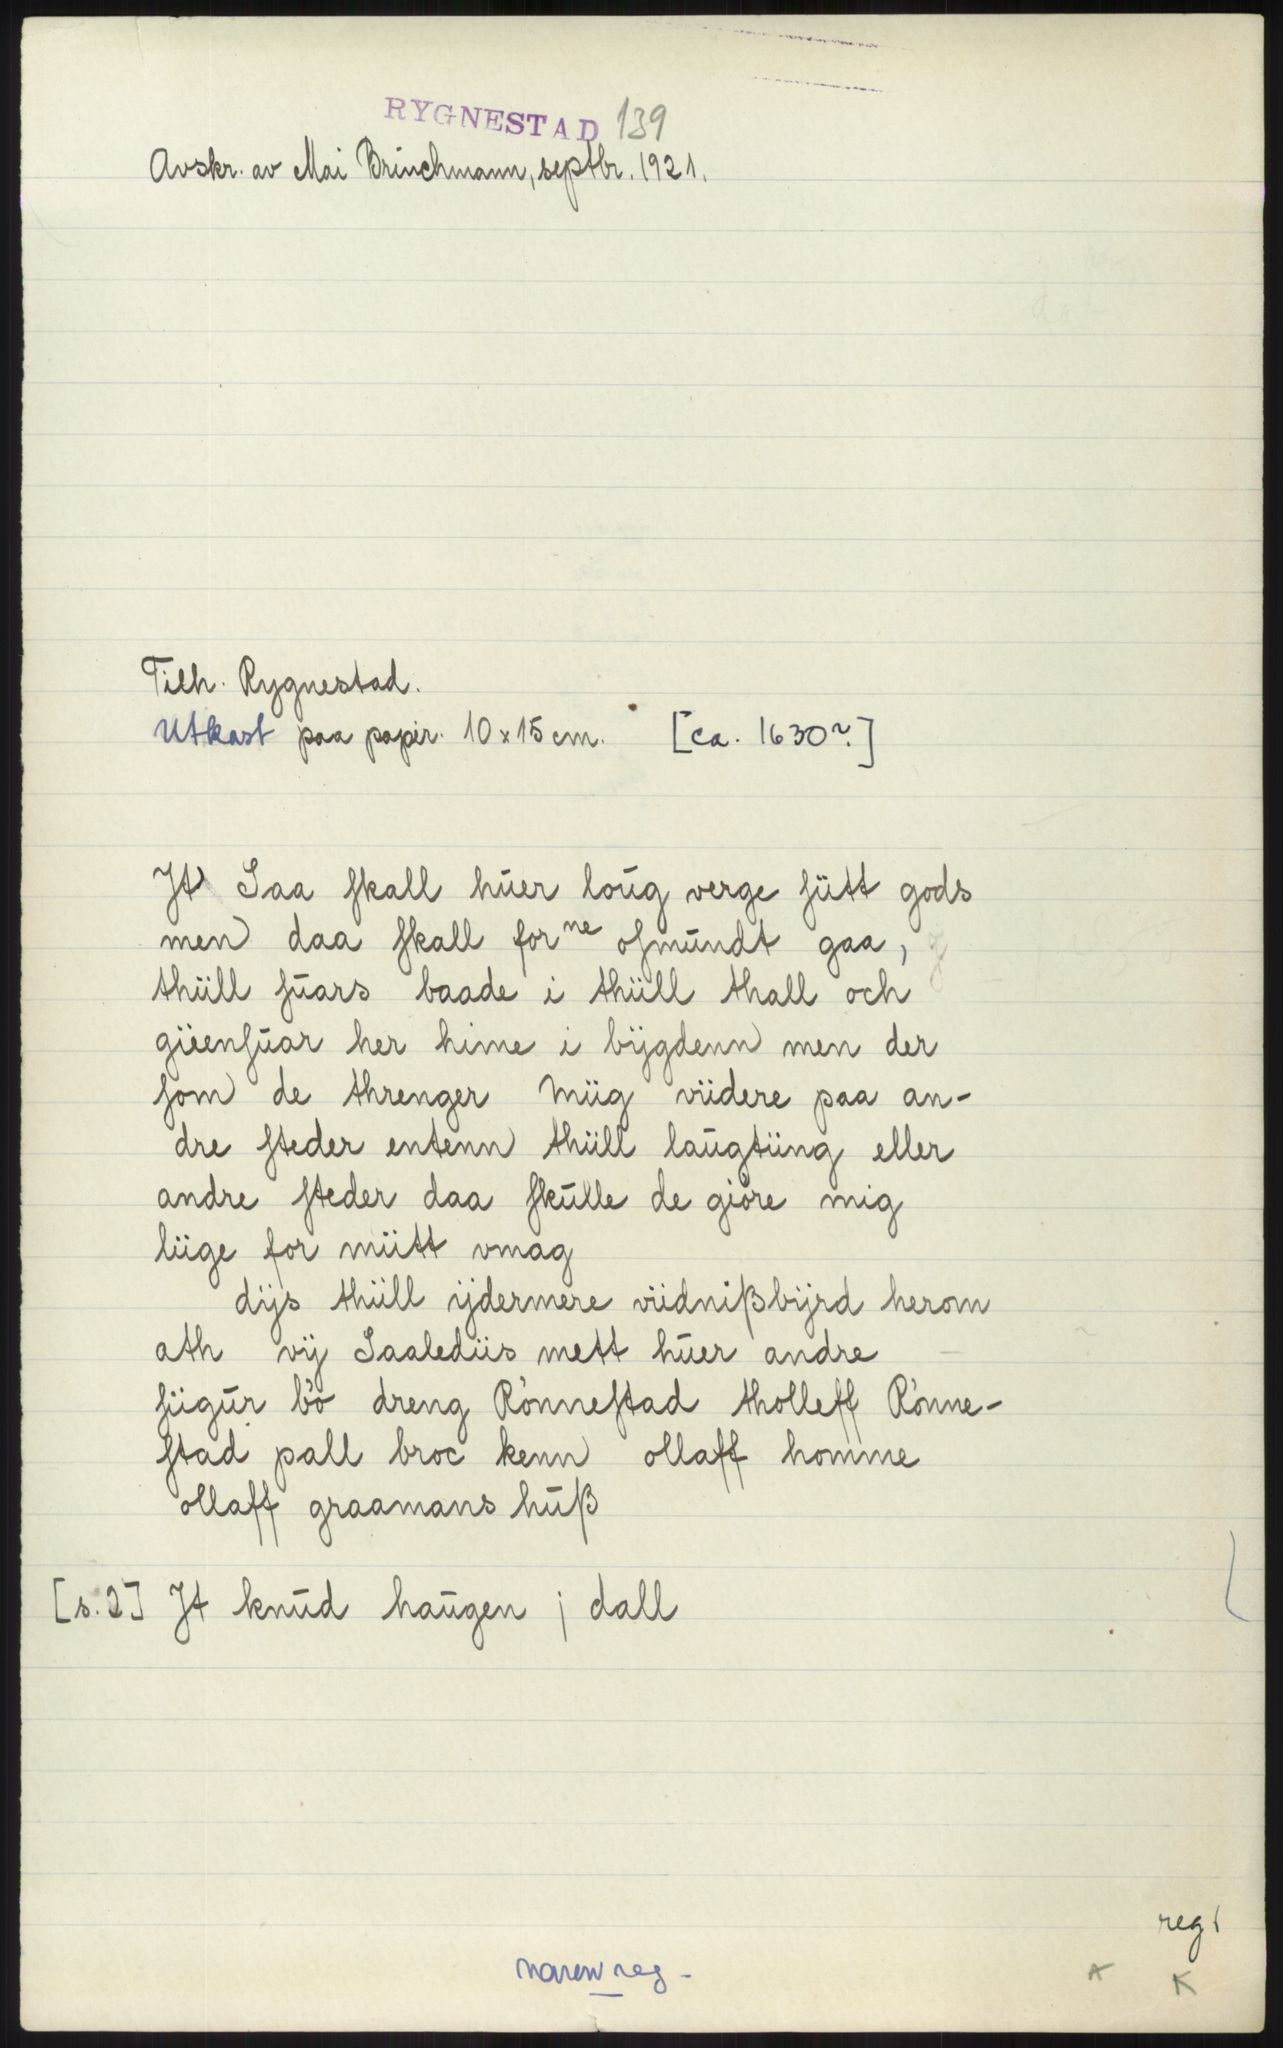 RYGNESTAD 139
Avskr. av Mai Brinchmann, septbr. 1921.
Tilh. Rygnestad.
Utkast paa papir. 10 x 15 cm. [ca. 1630?]
Jt Saa skall huer loug verge sütt gods
men daa skall for ne osmundt gaa,
thüll suars baade i thüll thall och
güensuar her hime i bÿgdenn men der
som de threnger Müg vüdere paa an-
dre steder entenn thüll laugtüng eller
andre steder daa skulle de giöre mig
lüge for mütt vmag
dÿs thüll ÿdermere vüdnißbÿrd herom
ath vÿ Saaledüs mett huer andre
sügur bö dreng Rönnestad tholleff Rönne-
stad pall broc kenn ollaff homme
ollaff graamans huß
[s. 2] Jt knud haugen j dall
reg
navnreg -